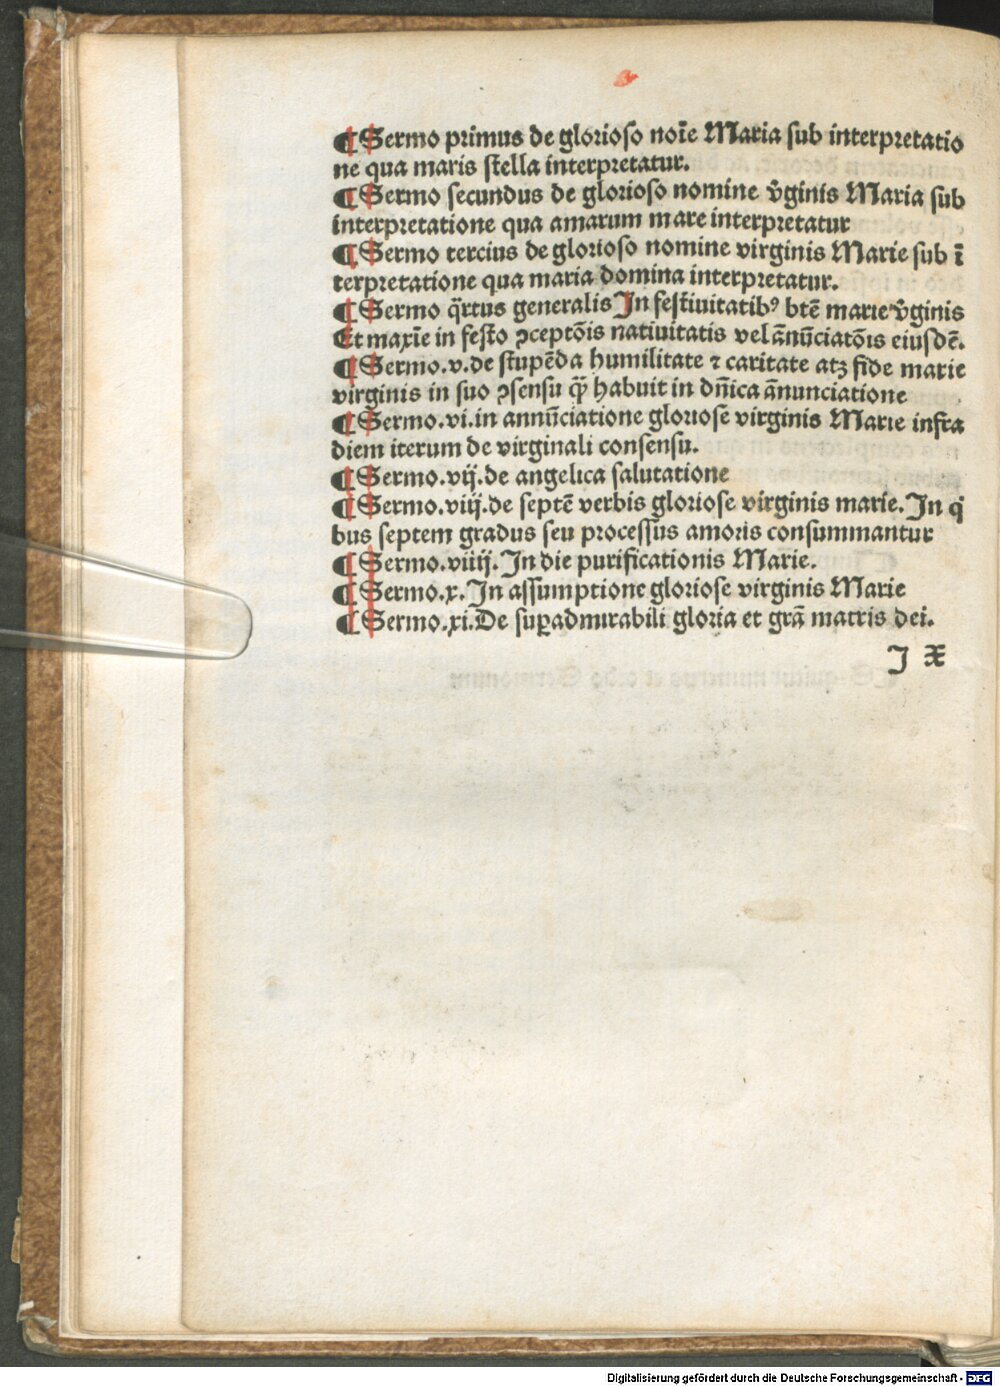 ¶ Sermo primus de glorioso noīe Maria sub interpretatio
ne qua maris stella interpretatur.
¶ Sermo secundus de glorioso nomine v̄ginis Maria sub
interpretatione qua amarum mare interpretatur
¶ Sermo tercius de glorioso nomine virginis Marie sub ī
terpretatione qua maria domina interpretatur.
¶ Sermo q̄rtus generalis In festiuitatibꝰ btē marie v̄ginis
Et maxīe in festo ꝯceptōis natiuitatis vel ānūciatōis eiusdē.
¶ Sermo.v.de stupēda humilitate ⁊ caritate atqꝫ fide marie
virginis in suo ꝯsensu quē habuit in dn̄ica ānunciatione
¶ Sermo.vi.in annūciatione gloriose virginis Marie infra
diem iterum de virginali consensu.
¶ Sermo.vij.de angelica salutatione
¶ Sermo.viij.de septē verbis gloriose virginis marie.In qi
bus septem gradus seu processus amoris consummantur
¶ Sermo.viiij.In die purificationis Marie.
¶ Sermo.x.In assumptione gloriose virginis Marie
¶ Sermo.xi.De suꝑadmirabili gloria et grā matris dei.
J X
Digitalisierung gefördert durch die Deutsche Forschungsgemeinschaft - DFG